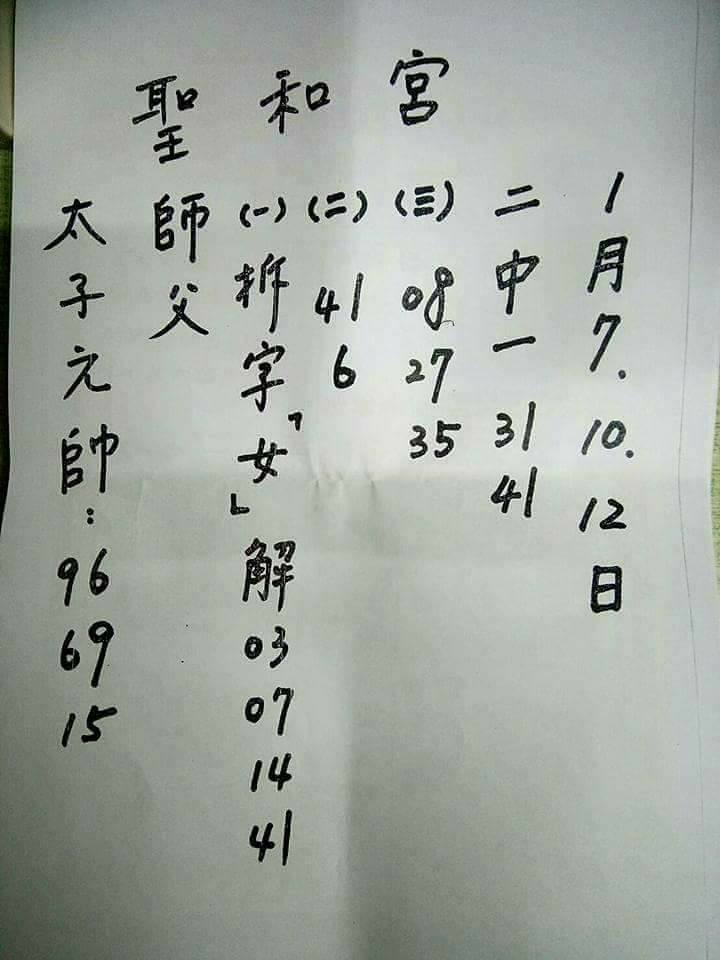 聖和宮
太子元帥：96 69 15
師父
(一)拆字「女」解 03 07 14 41
(二) 41 6
(三) 08 27 35
二中一 31 41
1月7.10.12日